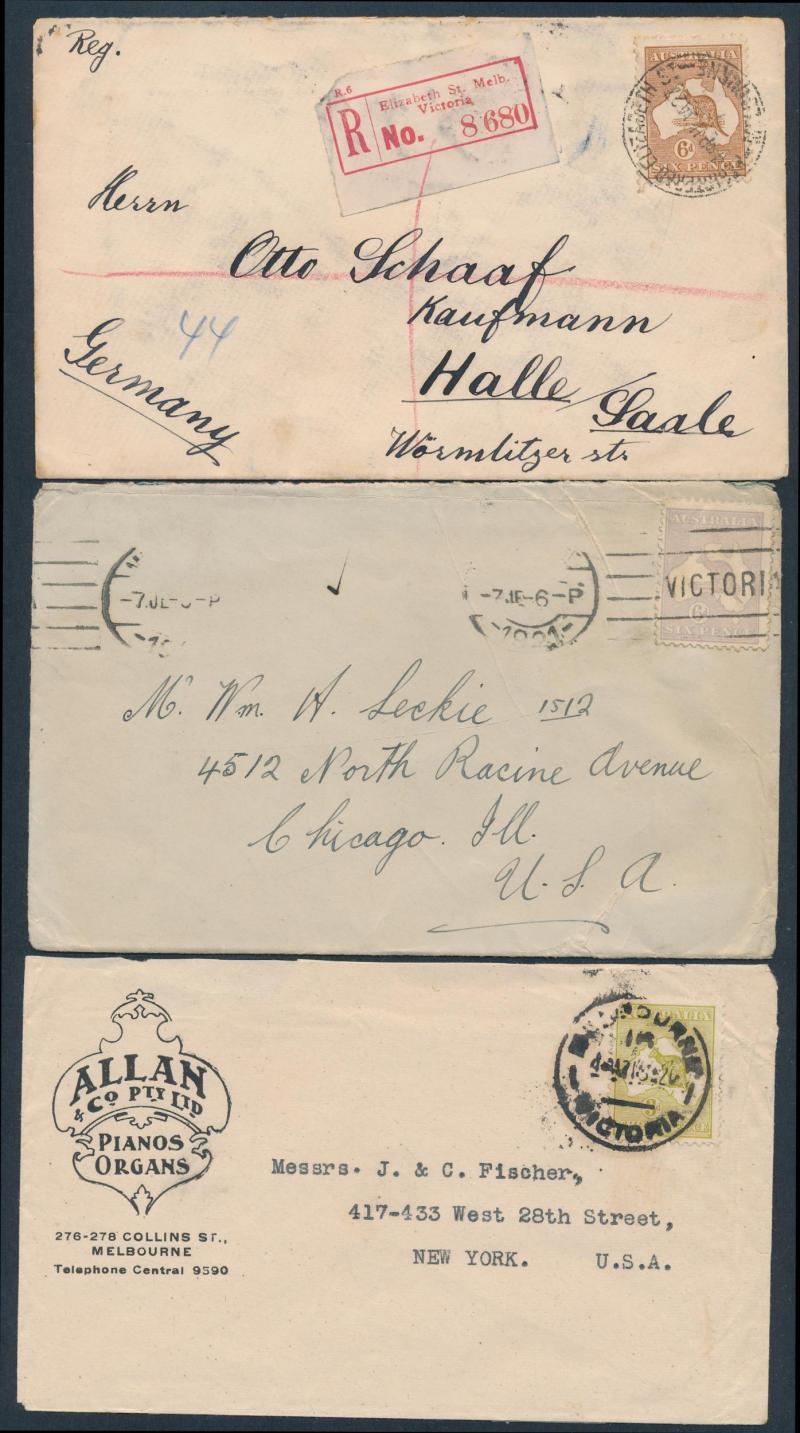 Reg.
R.6
Elizabeth St. Melb.
Victoria
R No. 8680
AUSTRALIA
6d
SIX PENCE
ELIZABETH ST
Herrn
Otto Schaaf
Kaufmann
44
Germany
Halle/Saale
Wörmlitzer str.
-7JE-6-P
1921
AUSTRALIA
VICTORI
6d
SIX PENCE
Mr. Wm. H. Leckie 1512
4512 North Racine Avenue
Chicago. Ill.
U. S. A.
ALLAN
& CO PTY LTD
PIANOS
ORGANS
276-278 COLLINS ST.,
MELBOURNE
Telephone Central 9590
MELBOURNE
VICTORIA
Messrs. J. & C. Fischer,
417-433 West 28th Street,
NEW YORK. U.S.A.